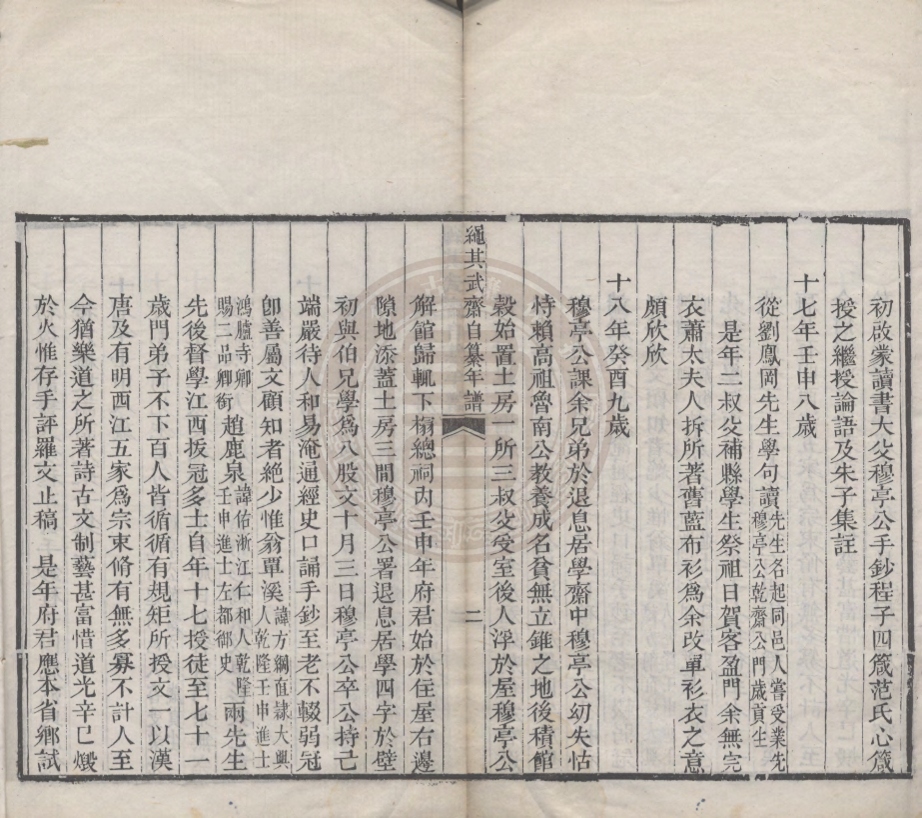 初啟蒙讀書大父穆亭公手鈔程子四箴范氏心箴
授之繼授論語及朱子集註
十七年壬申八歲
從劉鳳岡先生學句讀先生名起同邑人嘗受業先穆亭公乾齋公門歲貢生
是年二叔父補縣學生祭祖日賀客盈門余無完
衣蕭太夫人拆所著舊藍布衫為余改單衫衣之意
頗欣欣
十八年癸酉九歲
穆亭公課余兄弟於退息居學齋中穆亭公幼失怙
恃賴高祖魯南公教養成名貧無立錐之地後積館
穀始置土房一所三叔父受室後人浮於屋穆亭公
繩其武齋自纂年譜
二
解館歸輒下榻總祠內壬申年府君始於住屋右邊
隙地添蓋土房三間穆亭公署退息居學四字於壁
初與伯兄學為八股文十月三日穆亭公卒公持己
端嚴待人和易淹通經史口誦手鈔至老不輟弱冠
卽善屬文顧知者絕少惟翁覃溪諱方綱直隸大興人乾隆壬申進士
鴻臚寺卿賜二品卿銜趙鹿泉諱佑浙江仁和人乾隆壬申進士左都御史兩先生
先後督學江西拔冠多士自年十七授徒至七十一
歲門弟子不下百人皆循循有規矩所授文一以漢
唐及有明西江五家為宗束脩有無多寡不計人至
今猶樂道之所著詩古文制藝甚富惜道光辛巳燬
於火惟存手評羅文止稿 是年府君應本省鄉試